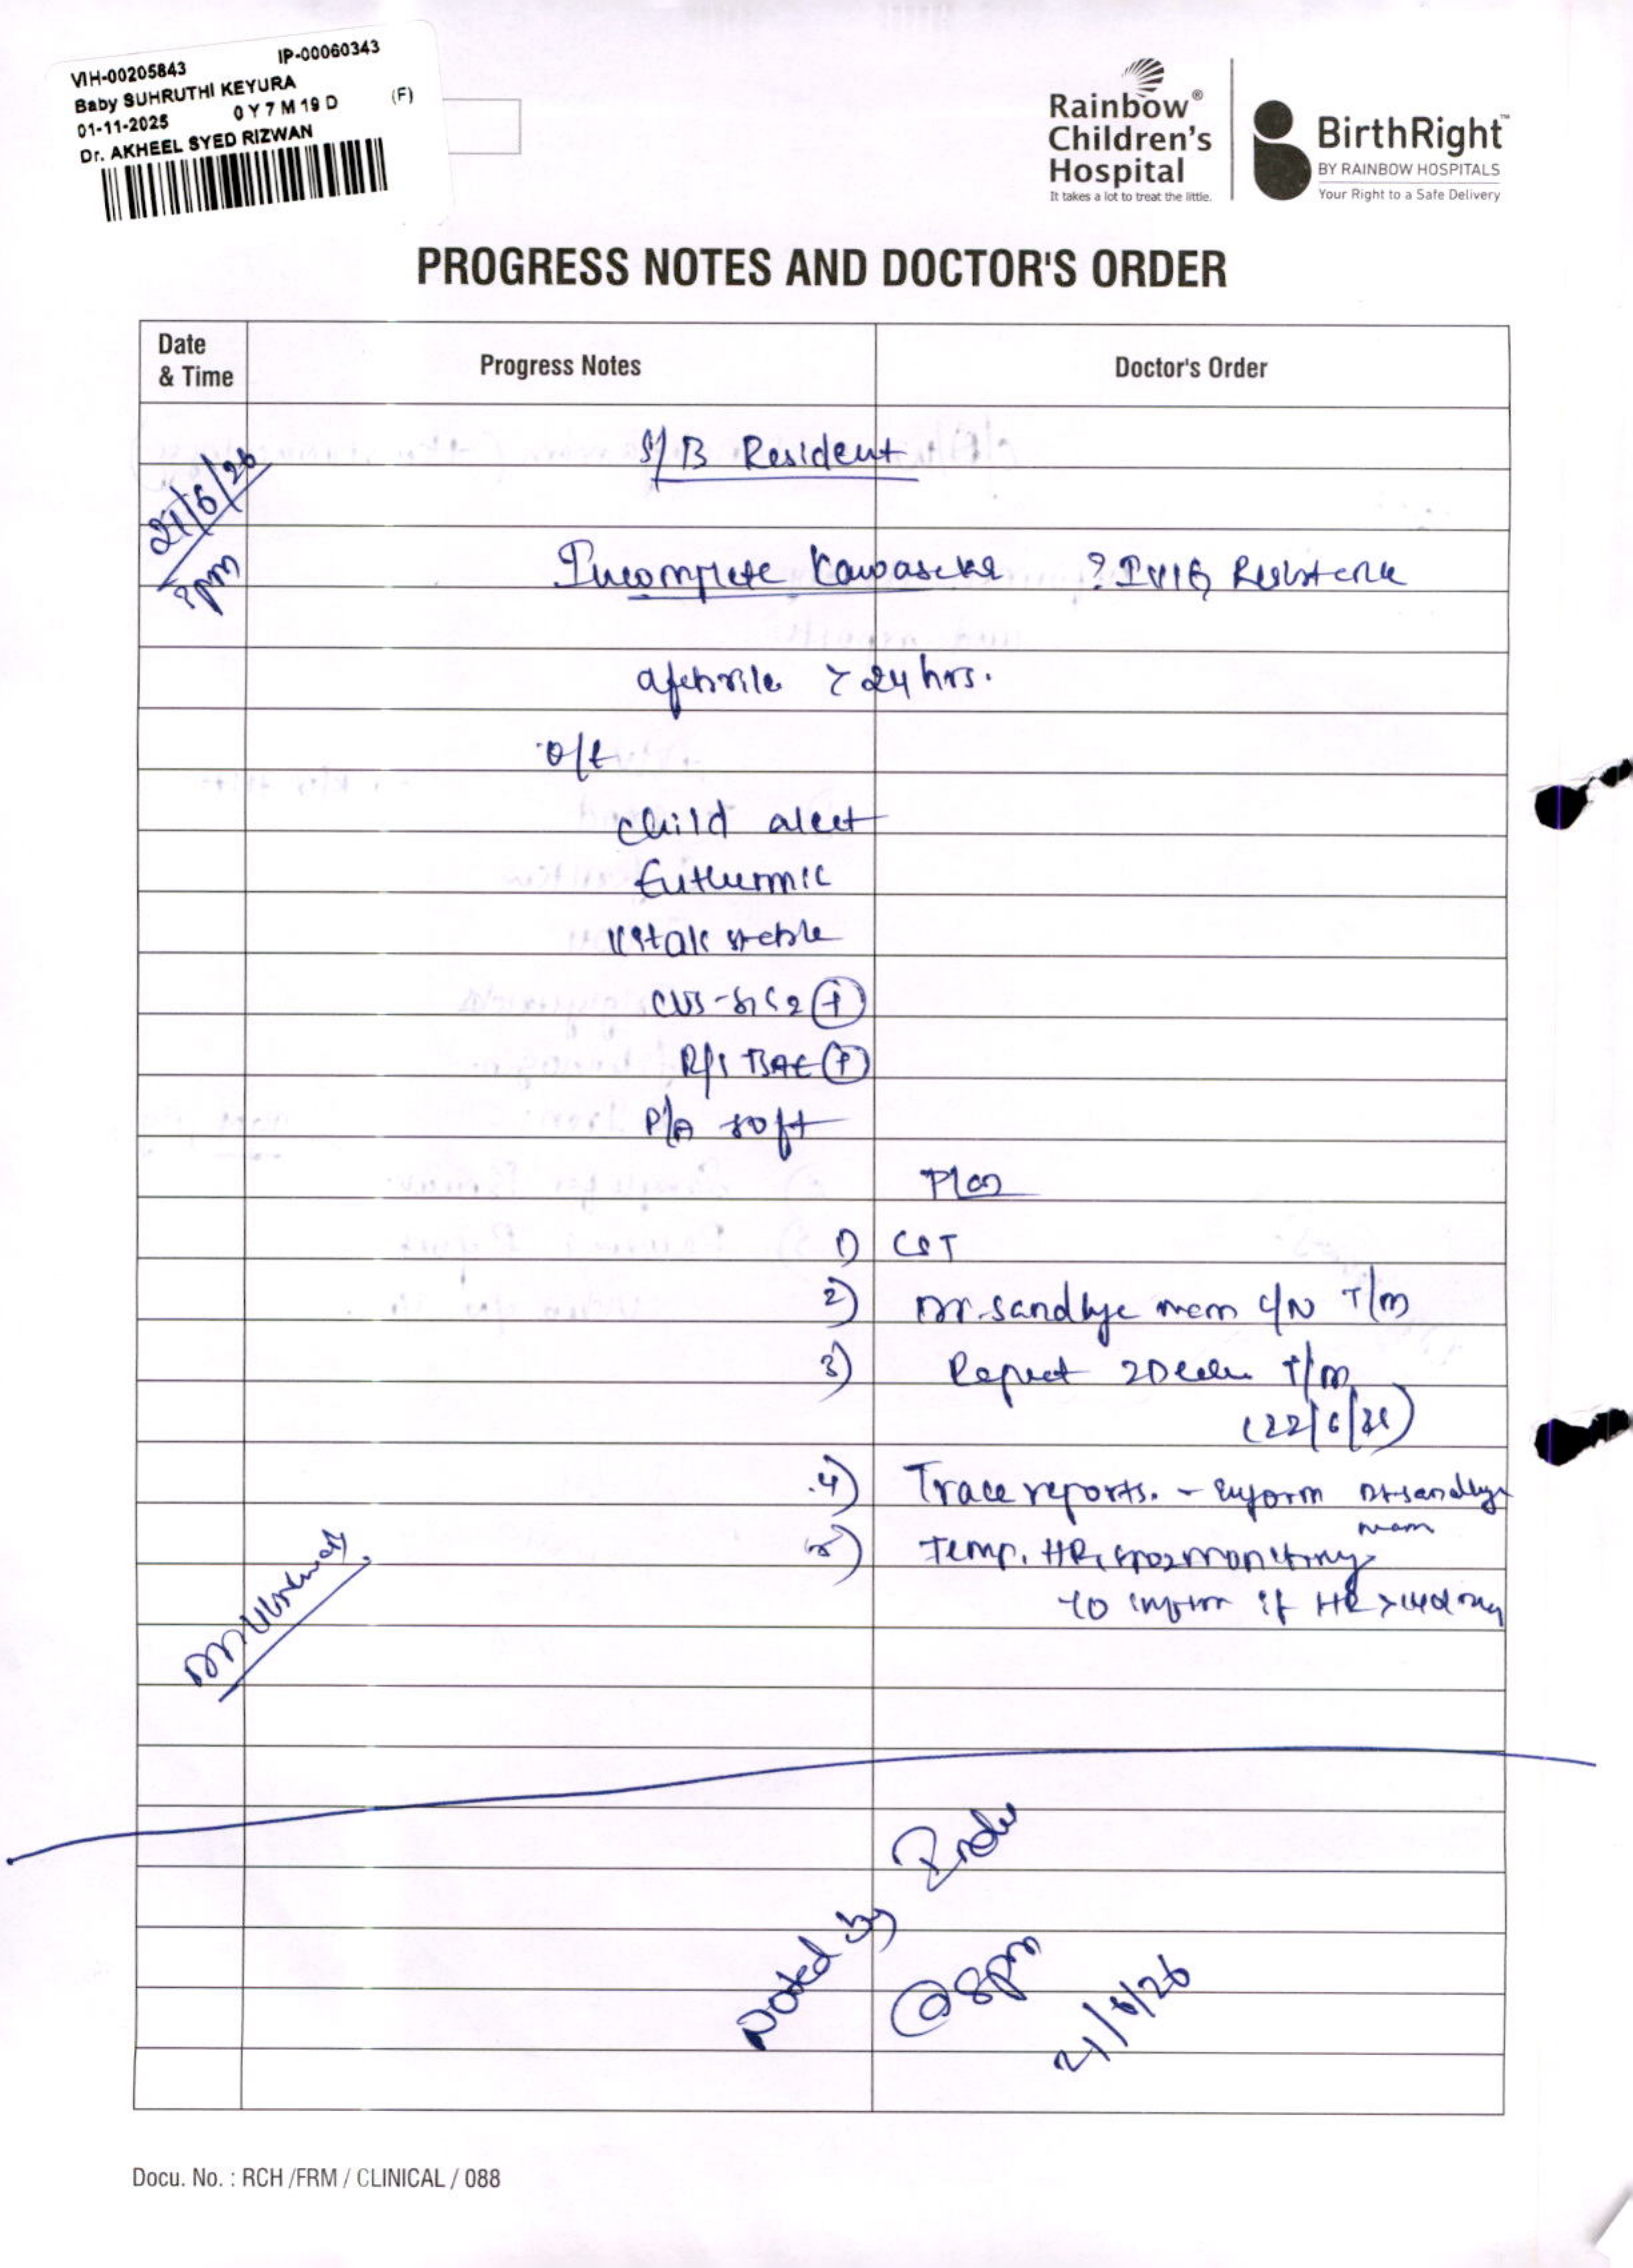 VIH-00205843 IP-00060343
Baby SUHRUTHI KEYURA
01-11-2025 0 Y 7 M 19 D (F)
Dr. AKHEEL SYED RIZWAN
Rainbow®
Children's
Hospital
It takes a lot to treat the little.
BirthRight™
BY RAINBOW HOSPITALS
Your Right to a Safe Delivery
PROGRESS NOTES AND DOCTOR'S ORDER
Date
& Time
Progress Notes
Doctor's Order
S/B Resident
21/6/26
Incomplete Kawasaki ? IVIG Resistence
afebrile > 24 hrs.
O/E
Child alert
Euthermic
Vitals stable
CVS - S1S2 (+)
R/S BAE (+)
P/A soft
Plan
1) CST
2) Dr. Sandhya mam C/N T/m
3) Repeat 2D echo T/m
(22/6/26)
4) Trace reports. - Inform Dr Sandhya
mam
5) Temp, HR, SpO2 monitoring
to inform if HR >
Noted by
@ 8pm
21/6/26
Docu. No. : RCH /FRM / CLINICAL / 088